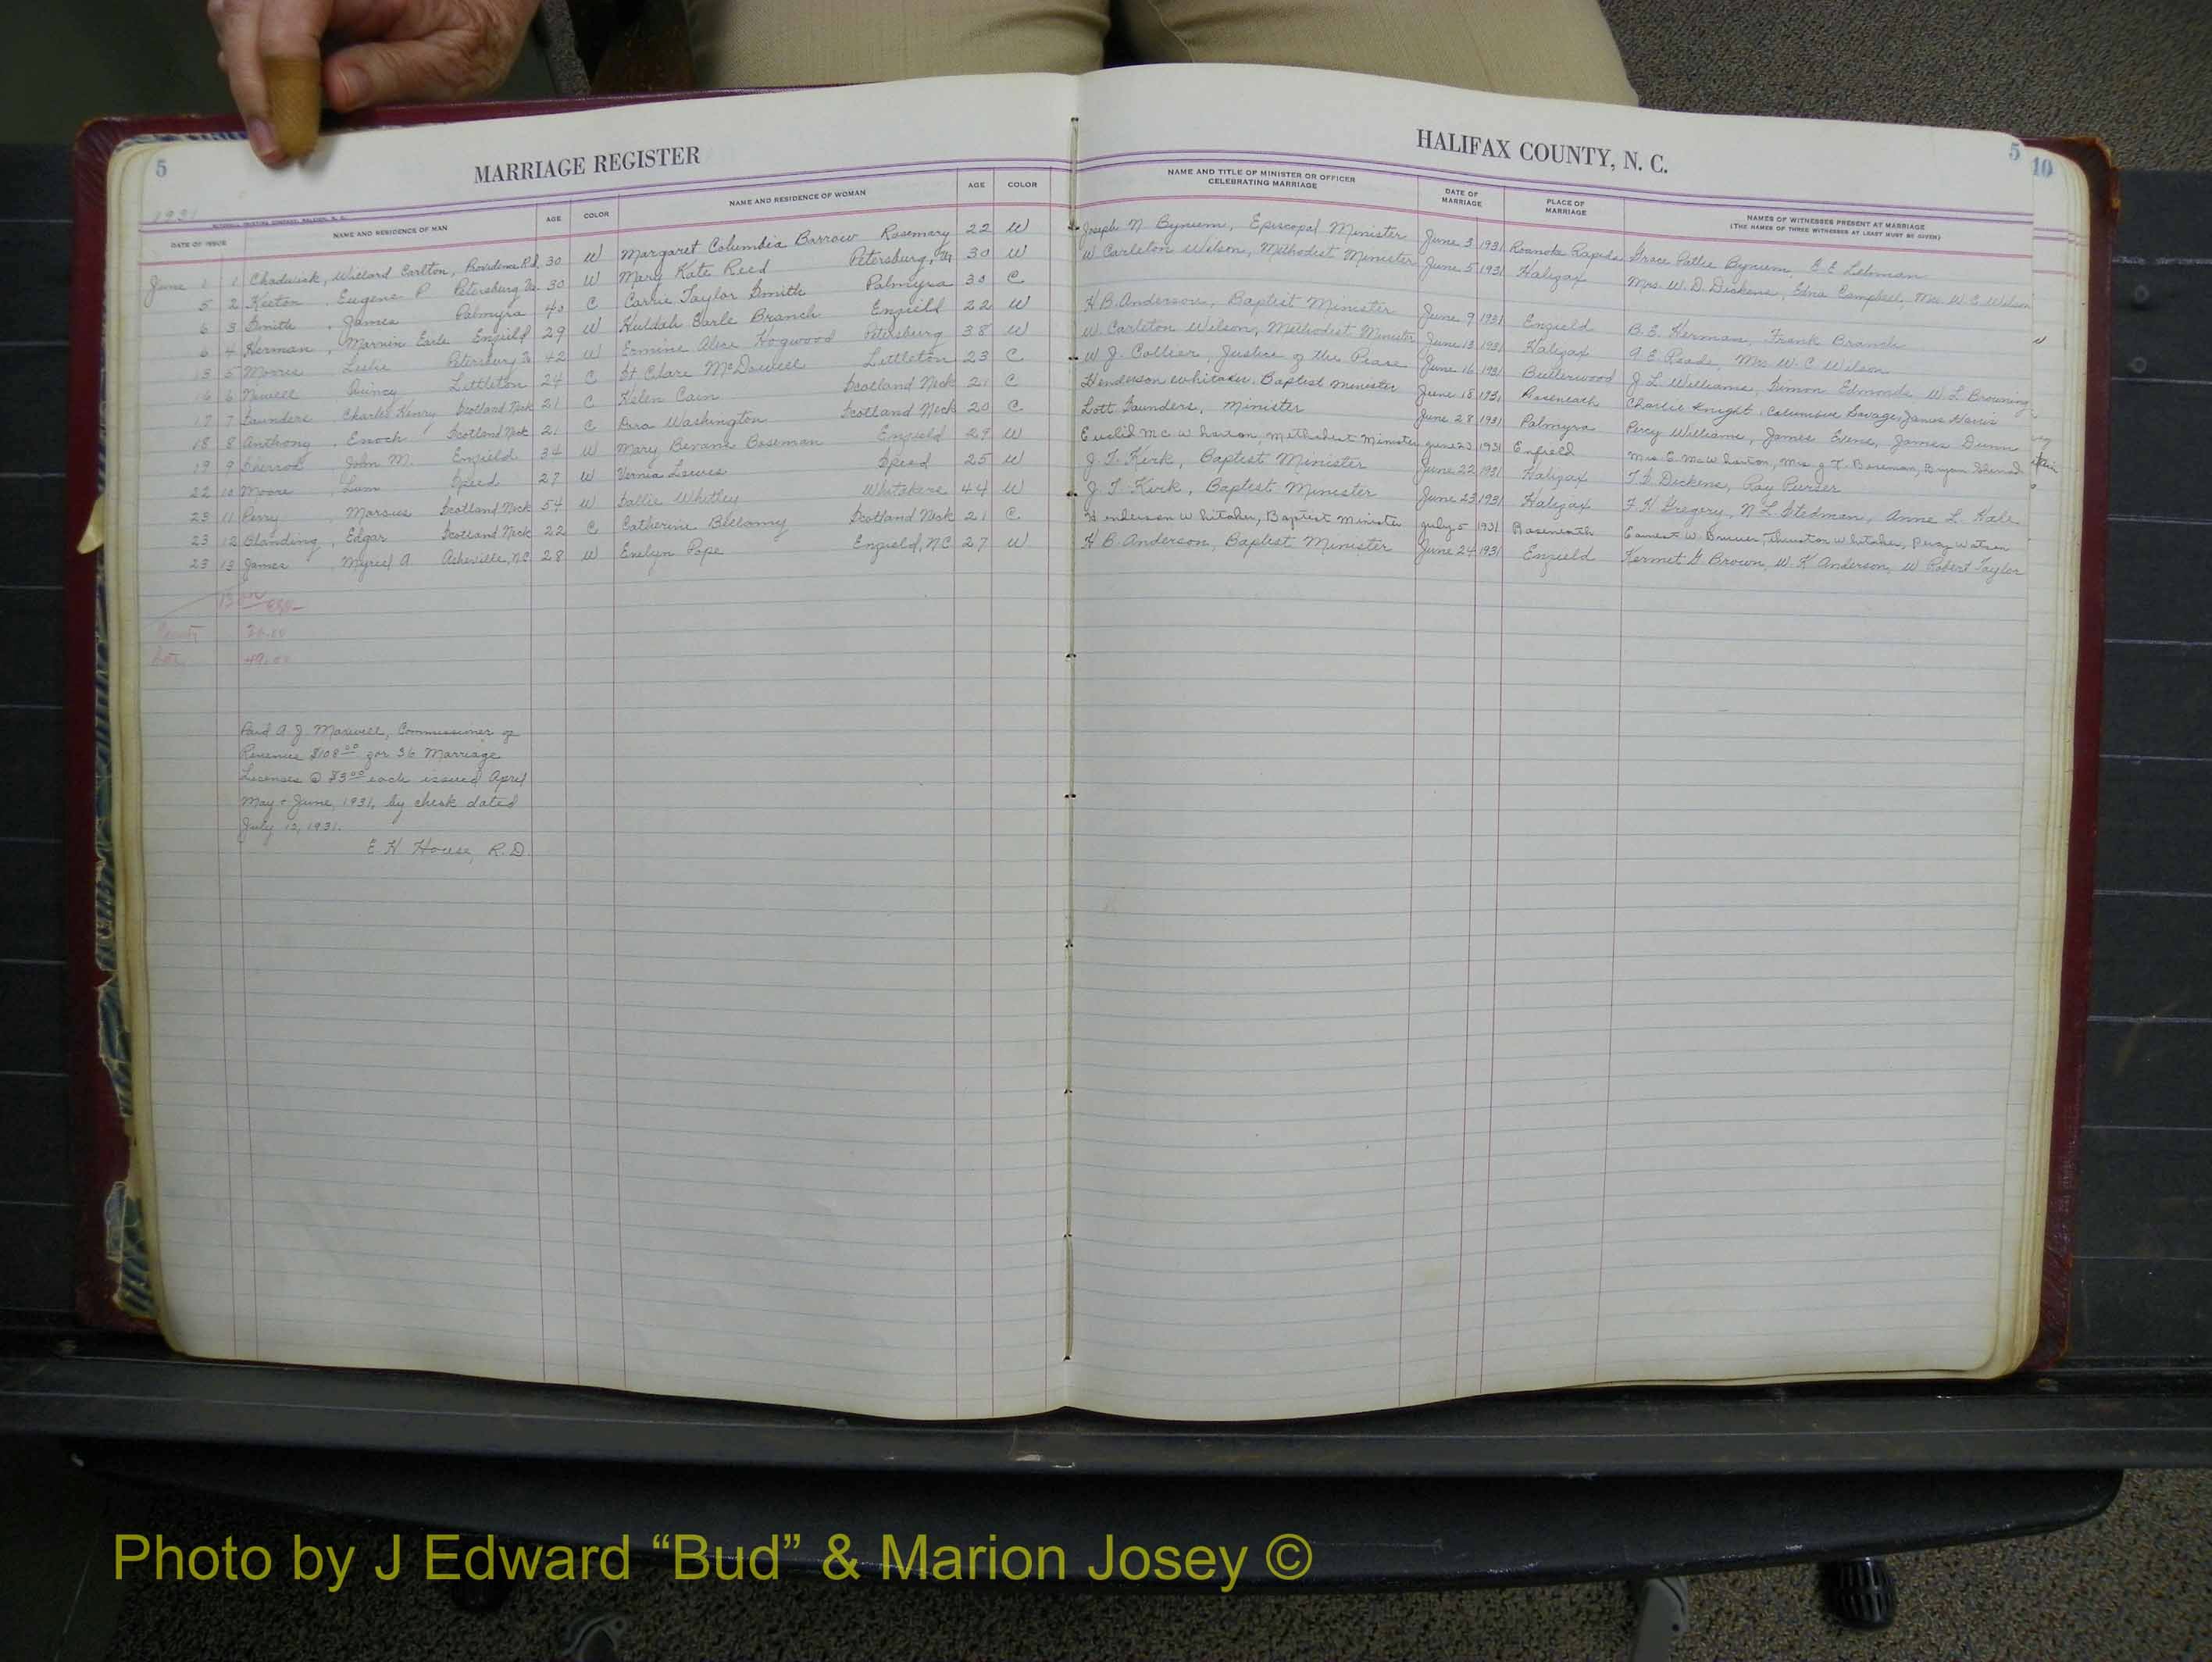 5
MARRIAGE REGISTER
1931
DATE OF ISSUE NAME AND RESIDENCE OF MAN AGE COLOR NAME AND RESIDENCE OF WOMAN AGE COLOR
June 1 1 Chadwick, Willard Carlton, Providence R.I. 30 W Margaret Columbia Barrow Rosemary 22 W
5 2 Keeton, Eugene P. Petersburg Va. 30 W Mary Kate Reed Petersburg, Va 30 W
6 3 Smith, James Palmyra 40 C Carrie Taylor Smith Palmyra 30 C
6 4 Herman, Marvin Earle Enfield 29 W Huldah Earle Branch Enfield 22 W
13 5 Morris Leslie Petersburg Va 42 W Ermine Alice Hogwood Petersburg 38 W
16 6 Newell Quincy Littleton 24 C St Clare McDowell Littleton 23 C
17 7 Saunders, Charles Henry Scotland Neck 21 C Helen Cain Scotland Neck 21 C
18 8 Anthony, Enoch Scotland Neck 21 C Washington Scotland Neck 20 C
19 9 Sherrod, John M. Enfield 34 W Mary Bevans Baseman Enfield 29 W
22 10 Moore, Lum Speed 27 W Vernia Lewis Speed 25 W
23 11 Perry Marcus Scotland Neck 54 W Sallie Whitley Whitakers 44 W
23 12 Blanding, Edgar Scotland Neck 22 C Catherine Bellamy Scotland Neck 21 C
23 13 James, A. Asheville, N.C. 28 W Evelyn Pope Enfield, N.C. 27 W
County
Paid A. J. Maxwell, Commissioner of
Revenue $108.00 for 36 Marriage
Licenses @ $3.00 each issued April
May + June, 1931, by check dated
July 13, 1931.
E H House, R.D.
HALIFAX COUNTY, N. C.
5
10
NAME AND TITLE OF MINISTER OR OFFICER CELEBRATING MARRIAGE DATE OF MARRIAGE PLACE OF MARRIAGE NAMES OF WITNESSES PRESENT AT MARRIAGE
(THE NAMES OF THREE WITNESSES AT LEAST MUST BE GIVEN)
Joseph N Bynum, Episcopal Minister June 3 1931 Roanoke Rapids Grace Pattie Bynum, E. E. Lehman
W Carleton Wilson, Methodist Minister June 5 1931 Halifax Mrs. W. D. Dickens, Edna Campbell, Mrs. W. C. Wilson
H B. Anderson, Baptist Minister June 9 1931 Enfield B. E. Herman, Frank Branch
W. Carleton Wilson, Methodist Minister June 13 1931 Halifax A. E. Roads, Mrs W. C Wilson
W. J. Collier, Justice of the Peace June 16 1931 Butterwood J. L. Williams, Simon Edmonds W. L. Browning
Henderson Whitaker, Baptist Minister June 18 1931 Roseneath Charlie Knight, Columbus Savage, James Davis
Lott Saunders, Minister June 28 1931 Palmyra Percy Williams, James Evens, James Dunn
Euclid McWhorton, Methodist Minister June 20 1931 Enfield Mrs E. McWhorton, Mrs J. T. Baseman, Bryan Sherrod
J. T. Kirk, Baptist Minister June 22 1931 Halifax T. D. Dickens, Ray Purser
J. T. Kirk, Baptist Minister June 23 1931 Halifax F. H. Gregory, N L Stedman, Anne L. Hale
Henderson Whitaker, Baptist Minister July 5 1931 Roseneath Earnest W. Thurston Whitaker, Percy Watson
H B. Anderson, Baptist Minister June 24 1931 Enfield Kermit G Brown, W. K Anderson, W Robert Taylor
Photo by J Edward “Bud” & Marion Josey ©